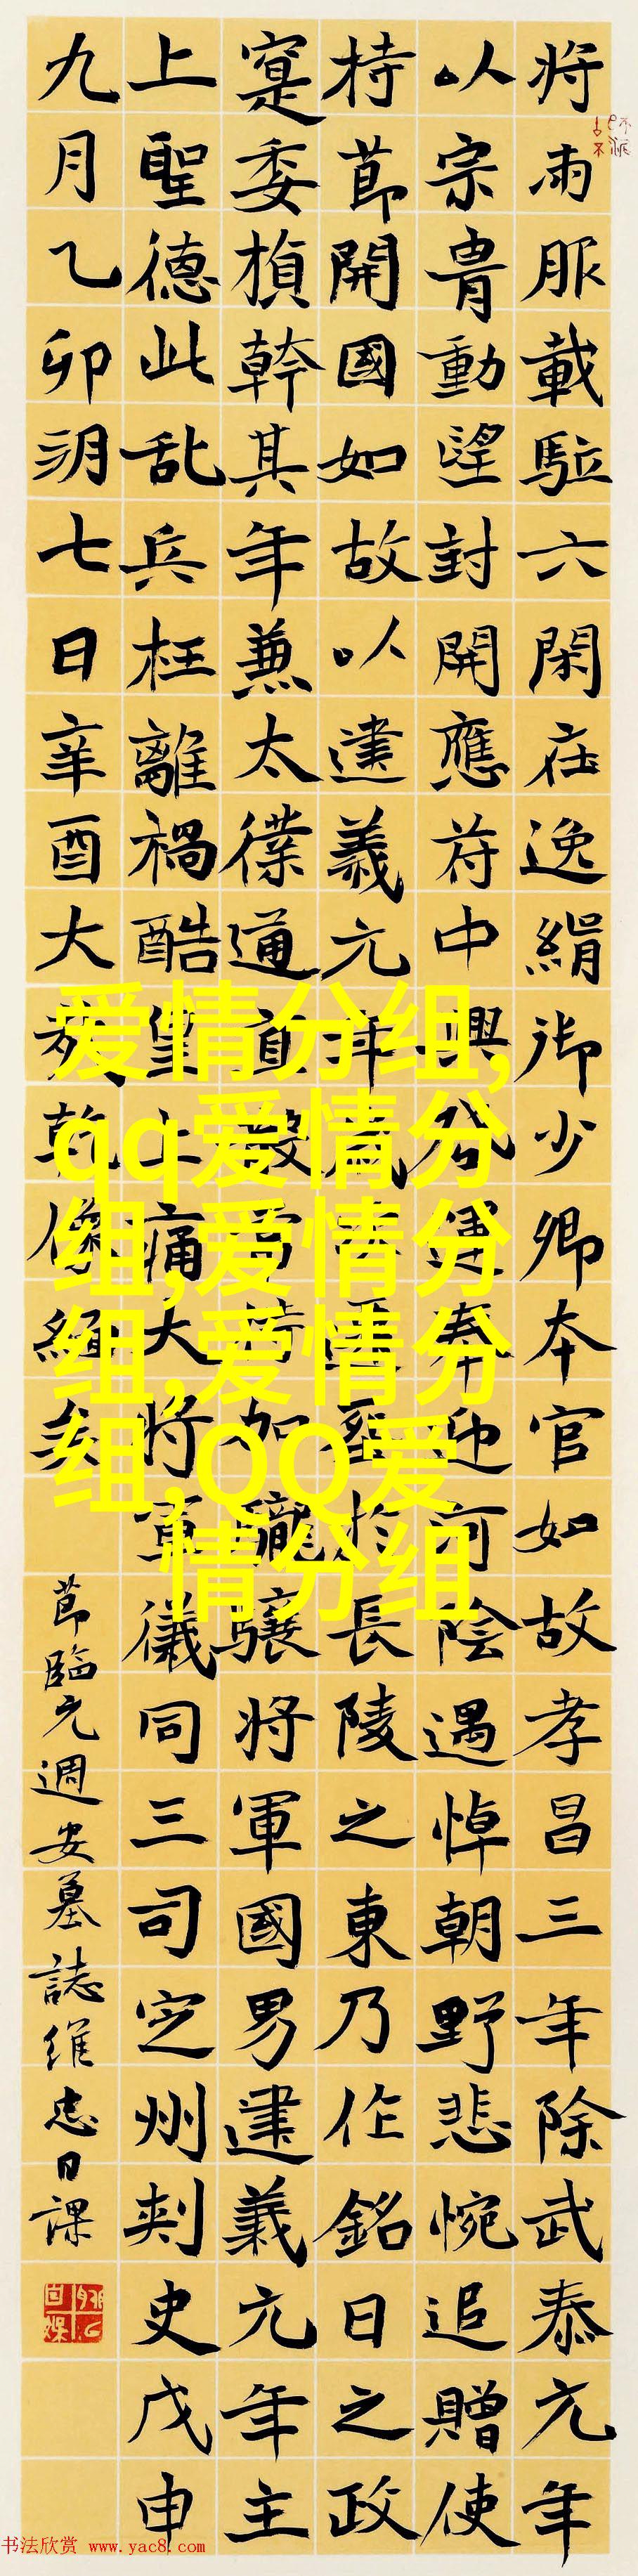 将雨服載駈六閑在逸絹御少卿本官如故孝昌三年除武泰元年
以宗胄動望封開應符中興啟運奉迎河陰遇悼朝野悲惋追贈使
持節開國如故以建義元年歲於長陵之東乃作銘日之政
寔委楨幹其年兼太僕道直當時加龍驤将軍國男建義元年主
上聖德此乱兵枉離禍酷皇上痛大将軍儀同三司定州刺史戊申
九月乙卯朔七日辛酉大哉乾像緬矣
節臨元週安墓誌維忠日課
爱情分组,
qq爱情分
组,爱情分
组,爱情分
组,QQ爱
情分组
书法欣赏 www.yac8.com